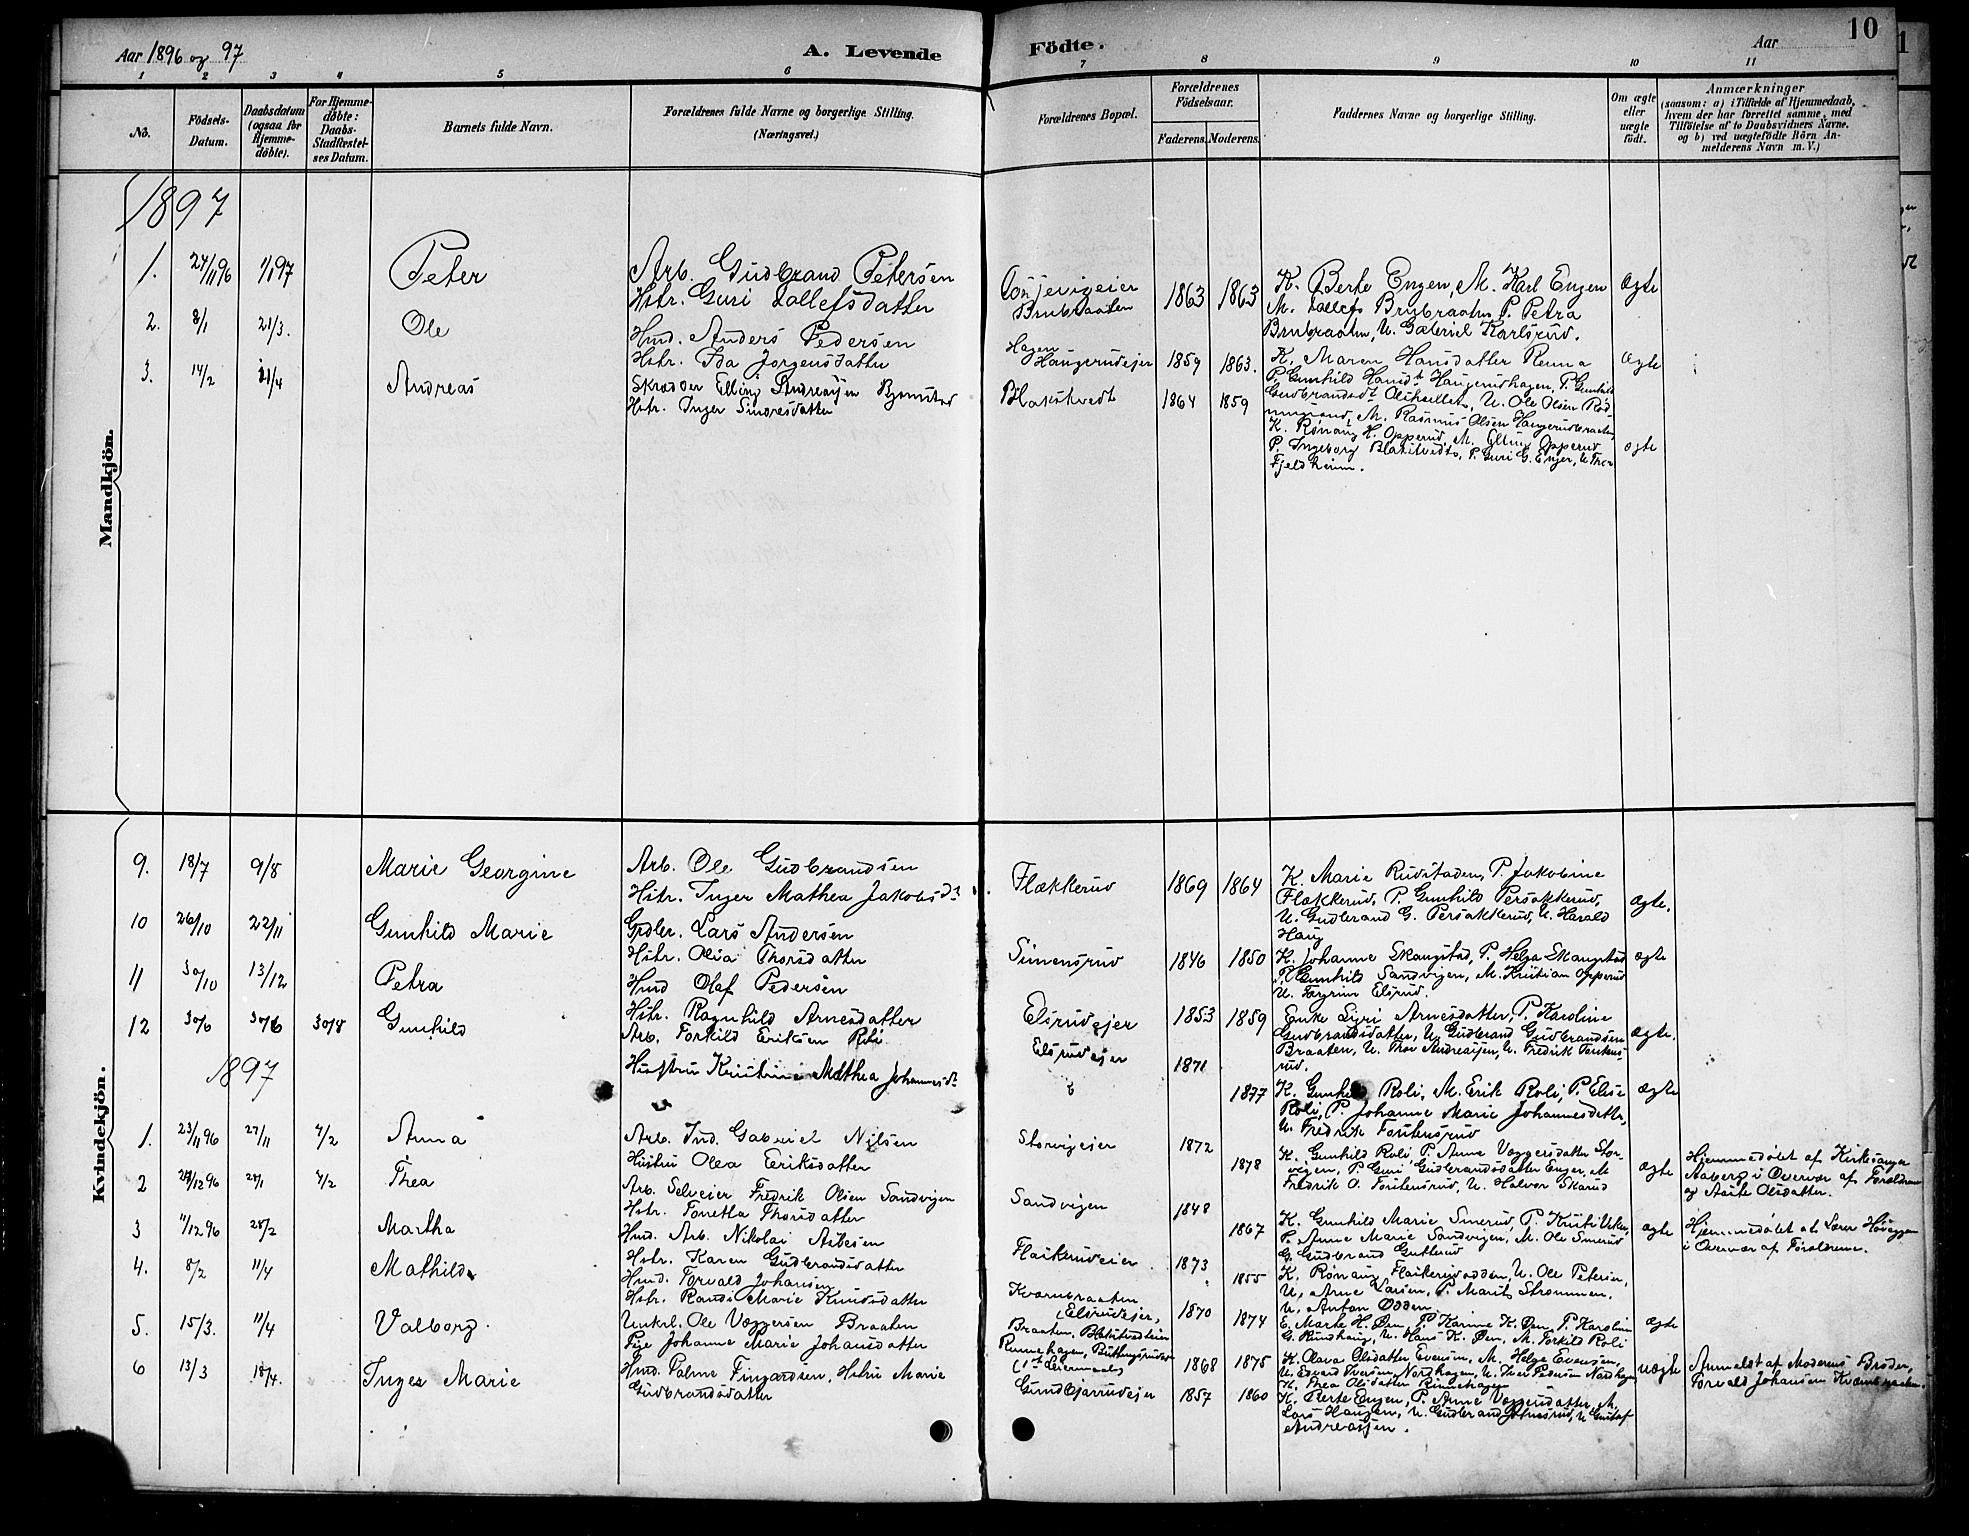 Aar 1896 og 97
A. Levende
Födte.
Aar
10
1 2 3 4 5 6 7 8 9 10 11
No.
Födsels-Datum.
Daabsdatum (ogsaa for Hjemme-døbte).
For Hjemme-døbte: Daabs-Stadfæstel-ses Datum.
Barnets fulde Navn.
Forældrenes fulde Navne og borgerlige Stilling.
(Næringsvei.)
Forældrenes Bopæl.
Forældrenes Födselsaar.
Faderens. Moderens.
Faddernes Navne og borgerlige Stilling.
Om ægte eller uægte födt.
Anmærkninger
(saasom: a) i Tilfælde af Hjemmedaab,
hvem der har forrettet samme, med
Tilföielse af to Daabsvidners Navne.
og b) ved uægtefödte Börn An-
melderens Navn m. V.)
Mandkjön.
1897
1. 27/11 96 1/1 97 Peter
Arb. Gudbrand Petersen
Hstr. Guri Tollefsdatter
Brubraaten
1863 1863
K. Berte Engen, M. Karl Engen
M. Tollefs Brubraaten, P. Petra
Brubraaten, U. Gabriel Karlsrud.
Ægte
2. 8/1 21/3. Ole
Hmd. Anders Pedersen
Hstr. Ida Jorgensdatter
Hagen
Haugerudejer
1859 1863.
K. Maren Hansdatter Renna
P. Gunhild Hansdt Haugerudhagen, P. Gunhild
Gudbrandsdt, U. Ole Olsen
M. Rasmus Olsen Haugerudbraaten
Ægte
3. 14/2 11/4 Andreas
Skrædder Elling Andreasen Bjørnstad
Hstr. Inger Sindresdatter
Blakstvedt
1864 1859
K. Rønaug H. Opperud, M. Elling Opperud
P. Ingeborg Blakstvedt, P. Guri G. Enger, U. Thor
Fjeldheim.
ægte
Kvindekjön.
9. 18/7 9/8 Marie Georgine
Arb. Ole Gudbrandsen
Hstr. Inger Mathea Jakobsdt.
Flækkerud
1869 1864
K. Marie Rudstaden, P. Jakobine
Flækkerud, P. Gunhild Persøkkerud,
U. Gudbrand G. Persøkkerud, U. Harald
Haug
Ægte.
10 26/10 22/11 Gunhild Marie
Grdbr. Lars Andersen
Hstr. Olia Thorsdatter
Simensrud
1846 1850
K. Johanne Skaugstad, P. Helga Skaugstad
P. Gunhild Sandvigen, M. Kristian Opperud
U. Torgrim Elsrud.
ægte
11 30/10 13/12 Petra
Hmd Olaf Pedersen
Hstr. Ragnhild Arnesdatter
Elsrudejer
1853 1859
Enke Sigri Arnesdatter, P. Karoline
Gudbrandsdatter, U. Gudbrand Gudbrandsen
Braaten, U. Thor Andreasen, U. Fredrik
Ægte.
12 30/6 30/6 30/8 Gunhild
Arb. Torkild Eriksen Roli
Hustru Kristine Mathea Johannesdt
Elsrudejer
1871
1877
K. Roli, M. Erik Roli, P. Elise
Roli, P. Johanne Marie Johannesdatter,
U. Fredrik Tostensrud
Ægte
1897
1. 23/11 96 27/11 7/2 Anna
Arb. Ind. Gabriel Nilsen
Hustru Olea Eriksdatter
Storvigeier
1872
1878
K. Gunhild Roli, P. Anne Væggersdatter Stor-
vigen, P. Guri Gudbrandsdatter Enger, M
Fredrik O. Tostensrud, U. Halvor Skarud
ægte
Hjemmedøbt af Kirkesanger
Aaberg i Overvær af Forældrene
og Aaste Olsdatter.
2 12 96 7/2 Thea
Arb. Selveier Fredrik Olsen Sandvigen
Hstr. Torretta Thorsdatter
Sandvigen
1848
1867
K. Gunhild Marie Smerud, P.
P. Anne Marie Sandvigen, M. Ole Smerud
G. Gudbrand
ægte
Hjemmedøbt af Lærer
i Overvær af Forældrene.
3 11/12 96 28/2 Martha
Hmd. Arb. Nikolai Asbesen
Hstr. Karen Gudbrandsdatter
Flaskerudeier
1873
1855
K. Rønaug, U. Ole Petersen,
U. Arne Larsen, P. Marit Strømmen,
U. Anton Odden
4. 8/2 11/4 Mathilde
Hmd. Torvald Johansen
Hstr. Randi Marie Knudsdatter
Kværnbraaten
Elsrudejer,
1870 1874
E. Marte H. Øen, P. Karine K. Øen, P. Karoline
G. Rundhaug, U. Hans K. Øen, M. Torkild Roli
ægte
5. 15/3. 11/4 Valborg
Unkrl. Ole Væggersen Braaten
Pige Johanne Marie Johansdatter
Braaten,
1868 1875
K. Olava Olsdatter Evensen, M. Helge Evensen,
U. Edvard Iversen Nordhagen, U. Thor Pedersen Nordhagen
K. Thea Olsdatter Rinnehagen
uægte
Anmeldt af Moderens Broder,
Torvald Johansen Kværnbraaten.
6 13/3 18/4. Inger Marie
Hmd. Palme Fingardsen, Hstru Marie
Gudbrandsdatter
Gundbjørrudejer
1857 1860
K. Berte Engen, P. Anne Væggersdatter, M.
Lars Haugen, U. Gudbrand, U. Gustaf
Andreassen.